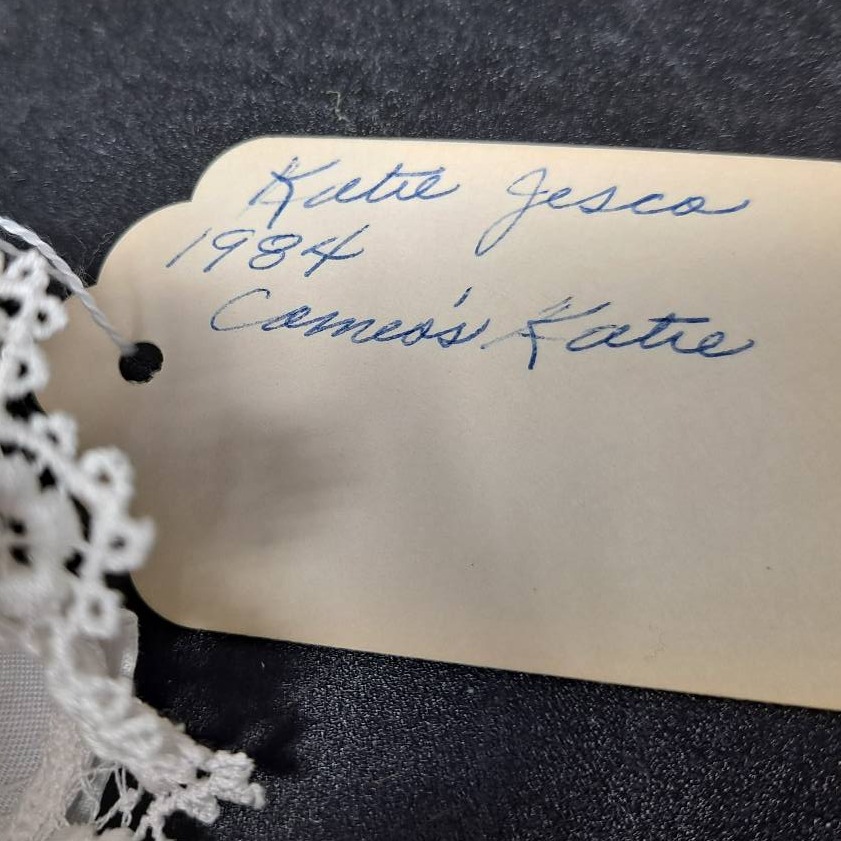 Katie Jesco
1984
Cameo's Katie